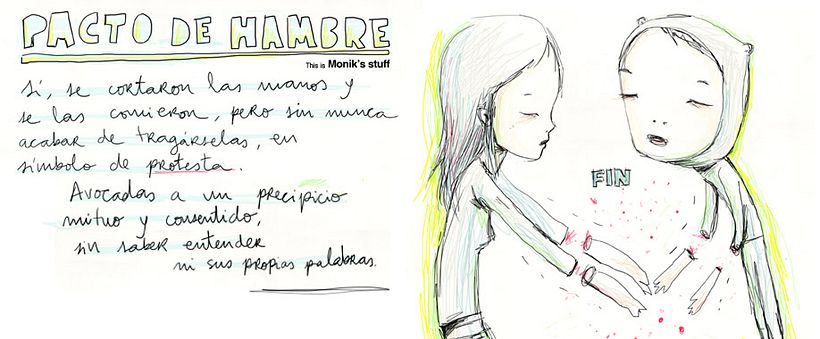 PACTO DE HAMBRE
This is Monik's stuff
Sí, se cortaron las manos y
se las comieron, pero sin nunca
acabar de tragárselas, en
símbolo de protesta.
Avocadas a un precipicio
mutuo y consentido,
sin saber entender
ni sus propias palabras.
FIN